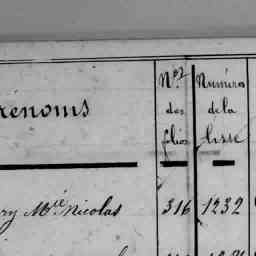 rénoms
Nos des folios
Numéros de la liste
ry Mie Nicolas 316 1232